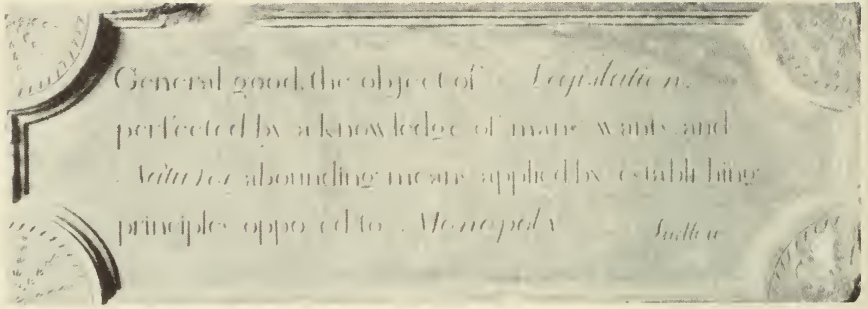 General good, the object of Legislation,
perfected by a knowledge of mans wants and
Natures abounding means applied by establishing
principles opposed to Monopoly
Ludlow